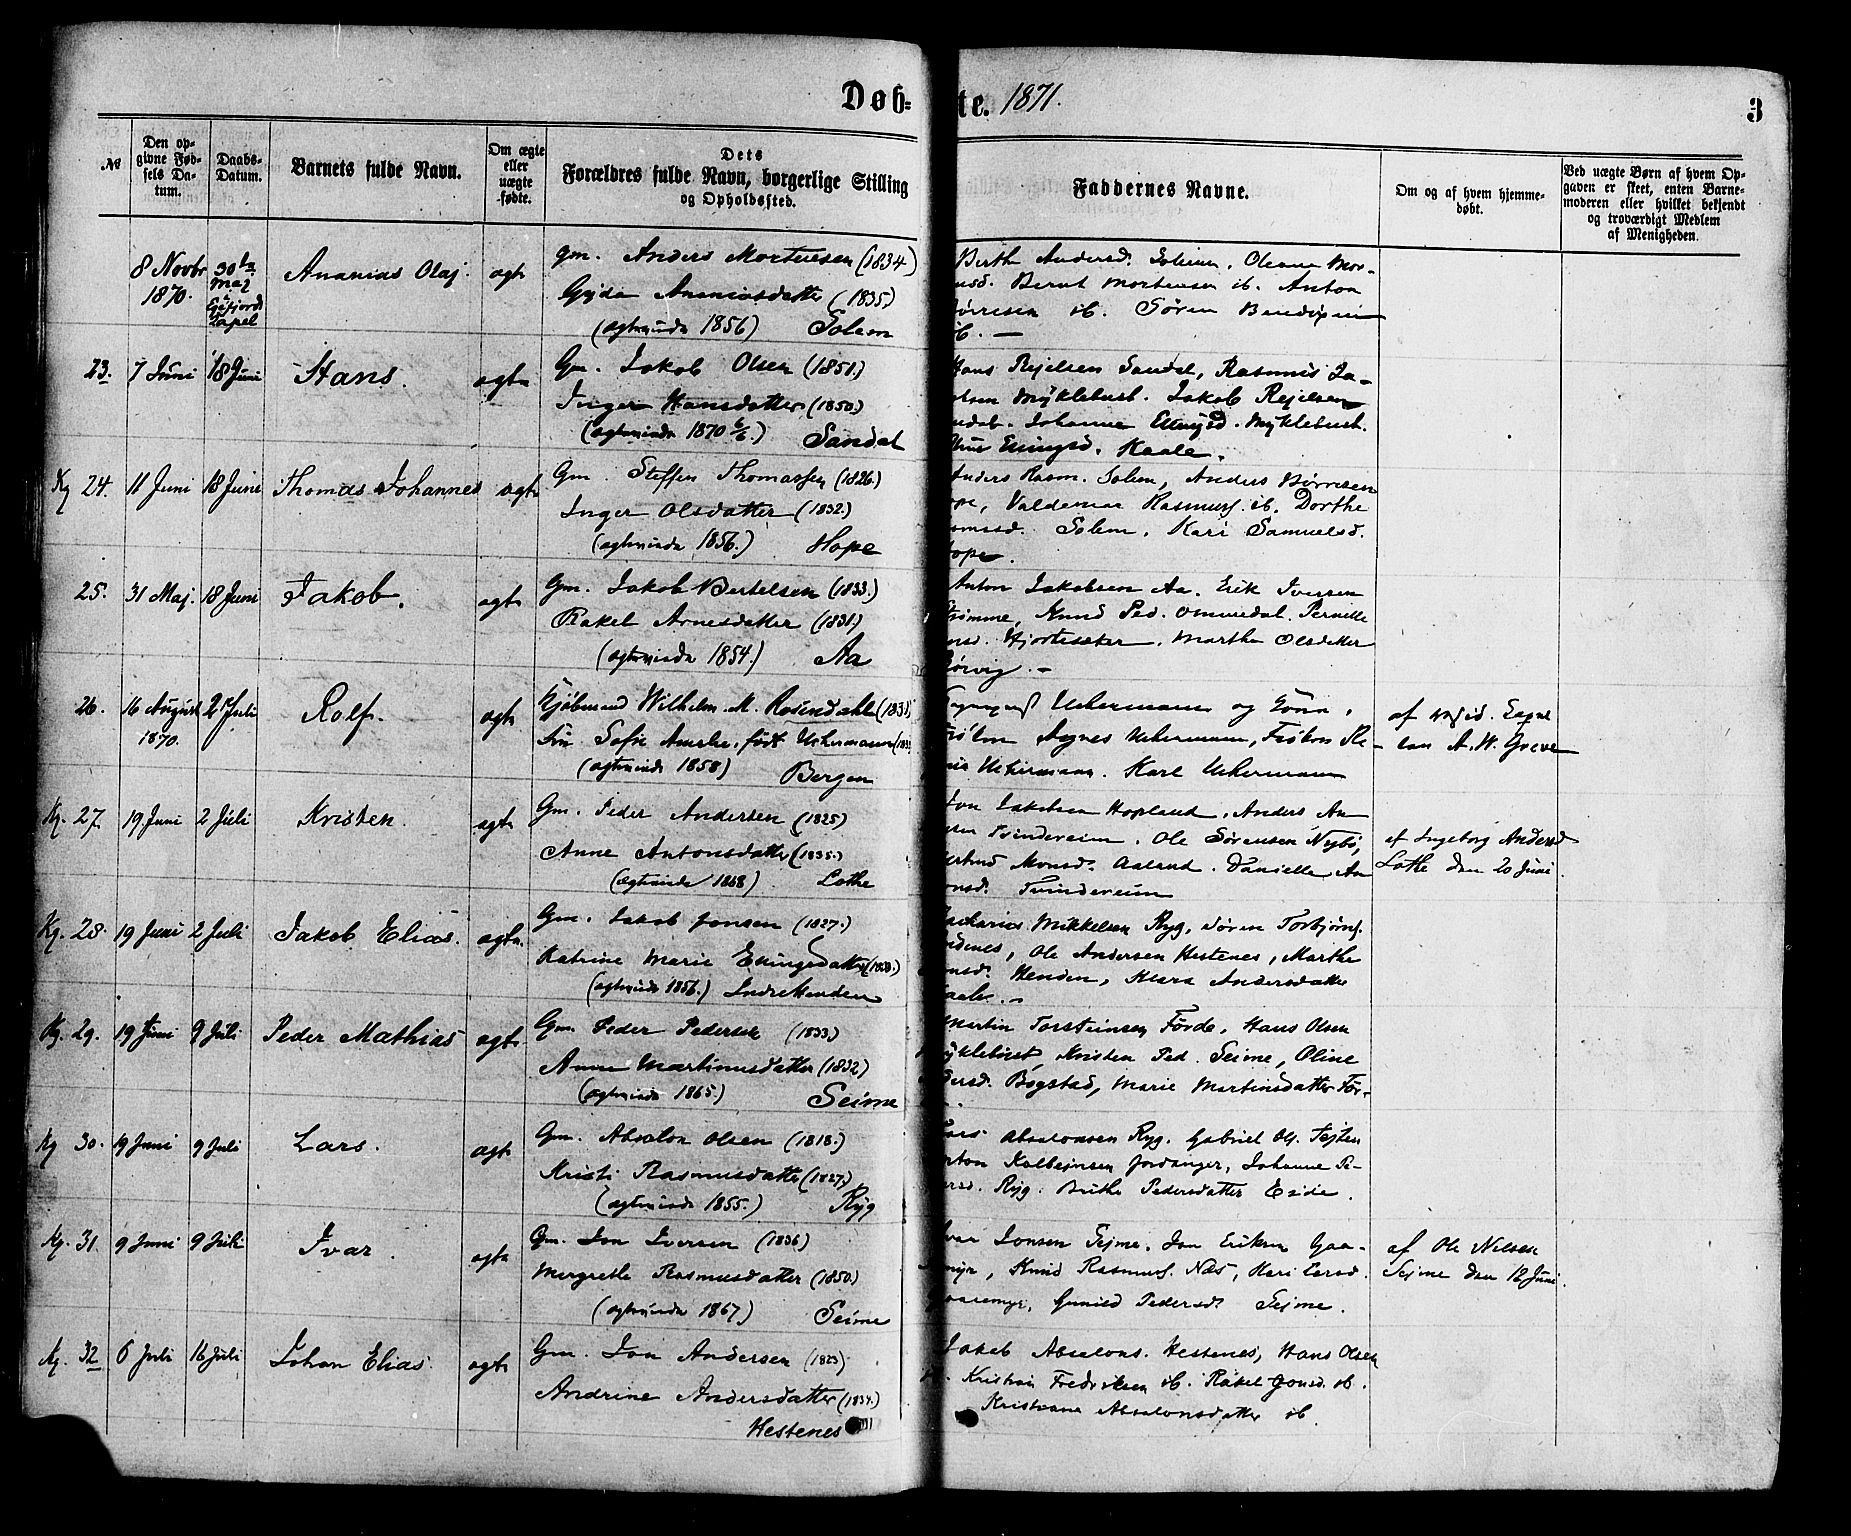 Døb-te. 1871.
3
№
Den op-
givne Fød-
sels Da-
tum.
Daabs-
Datum.
Barnets fulde Navn.
Om ægte
eller
uægte
fødte.
Dets
Forældres fulde Navn, borgerlige Stilling
og Opholdssted.
Faddernes Navne.
Om og af hvem hjemme-
døbt.
Ved uægte Børn af hvem Op-
gaven er skeet, enten Barne-
moderen eller hvilket bekjendt
og troværdigt Medlem
af Menigheden.
8 Novbr
1870.
30te
Maj
Capel
Ananias Olaj
ægte
Gm. Anders Mortensen (1834)
Ananiasdatter (1835)
(ægteviede 1856) Solem
Berthe Andersd. Solem, Oleane Mor-
Bernt Mortensen ib. Anton
ib. Søren
ib. —
23.
7 Juni
18 Juni
Hans.
ægte
Gm. Jakob Olsen (1851.)
Inger Hansdatter (1850.)
(ægteviede 1870) Sandal
Hans Rejelsen Sandal, Rasmus Ja-
Myklebust. Jakob Rejelsen
Johanne Elingsd. Myklebust.
Elingsd. Kaale.
Kg 24.
11 Juni
18 Juni
Thomas Johannes
ægte
Gm. Steffen Thomassen (1826.)
Inger Olsdatter (1832.)
(ægteviede 1856.) Hope
Anders Rasm. Solem, Anders Børresen
Valdemar Rasmuss. ib. Dorthe
Solem, Kari Samuelsd.
Hope.
25.
31 Maj.
18 Juni
Jakob.
ægte
Gm. Jakob Bertelsen (1833.)
Rakel Arnesdatter (1831.)
(ægteviede 1854.) Aa
Anton Jakobsen Aa. Erik Iversen
Strømme, Knud Ped. Ommedal. Pernille
Hjortesæter. Marthe Olsdatter
Sørvig. —
26.
16 August
1870.
2 Juli
Rolf.
ægte
Kjøbmand Wilhelm M. Rosendahl (1831)
Sofie Amalie, født Uchermann
(ægteviede 1858) Bergen
Uchermann og Kone,
Frøken Agnes Uchermann, Frøken
Uchermann. Karl Uchermann
af
A. W. Greve
Kg. 27
19 Juni
2 Juli
Kristen.
ægte
Gm. Peder Andersen (1825)
Anne Antonsdatter (1835.)
(ægteviede 1868) Lothe
Jakobsen Hopland, Anders An
Tvindereim, Ole Sørensen Nybø,
Monsd. Aaland. Danielle An
Tvindereim
af Ingeborg Andersd
Lothe den 20 Juni.
Kg. 28.
19 Juni
2 Juli
Jakob Elias.
ægte
Gm. Jakob Jonsen (1827.)
Katrine Marie Elingsdatter
(ægteviede 1856.) Indre Henden
Zacharias Mikkelsen Ryg, Søren Torbjørns.
Ole Andersen Hestenes, Marthe
Henden, Klara Andersdatter
Kaale. —
Kg. 29.
19 Juni
9 Juli
Peder Mathias
ægte
Gm. Peder Pedersen (1833)
Anne Martinusdatter (1832)
(ægteviede 1865.) Seime
Martin Torsteinsen Førde, Hans Olsen
Myklebust, Kristen Ped. Seime, Oline
Bøgstad, Marie Martinsdatter Før-
Kg 30.
19 Juni
9 Juli
Lars.
ægte
Gm. Absalon Olsen (1818.)
Kristi Rasmusdatter (1827.)
(ægteviede 1855.) Ryg
Lars Absalonsen Ryg. Gabriel Ols.
Kolbejnsen Jordanger, Johanne Pe-
Ryg. Brithe Pedersdatter Eide.
Kg. 31.
9 Juni
9 Juli
Ivar.
ægte
Gm. Jon Iversen (1836)
Margrethe Rasmusdatter (1850.)
(ægteviede 1867.) Seime
Ivar Jonsen Sejme. Jon Eriksen Gaa-
Knud Rasmuss. Næs, Kari Larsd.
Gaaremyr, Gunild Pedersd. Sejme.
af Ole Nilsen
Sejme den 12 Juni.
Kg. 32
6 Juli
16 Juli
Johan Elias.
ægte
Gm. Jon Andersen (1823)
Andrine Andersdatter (1834.)
Hestenes
Jakob Absalons. Hestenes, Hans Olsen
Kristian Fredriksen ib. Rakel Jonsd. ib.
Kristiane Absalonsdatter ib.